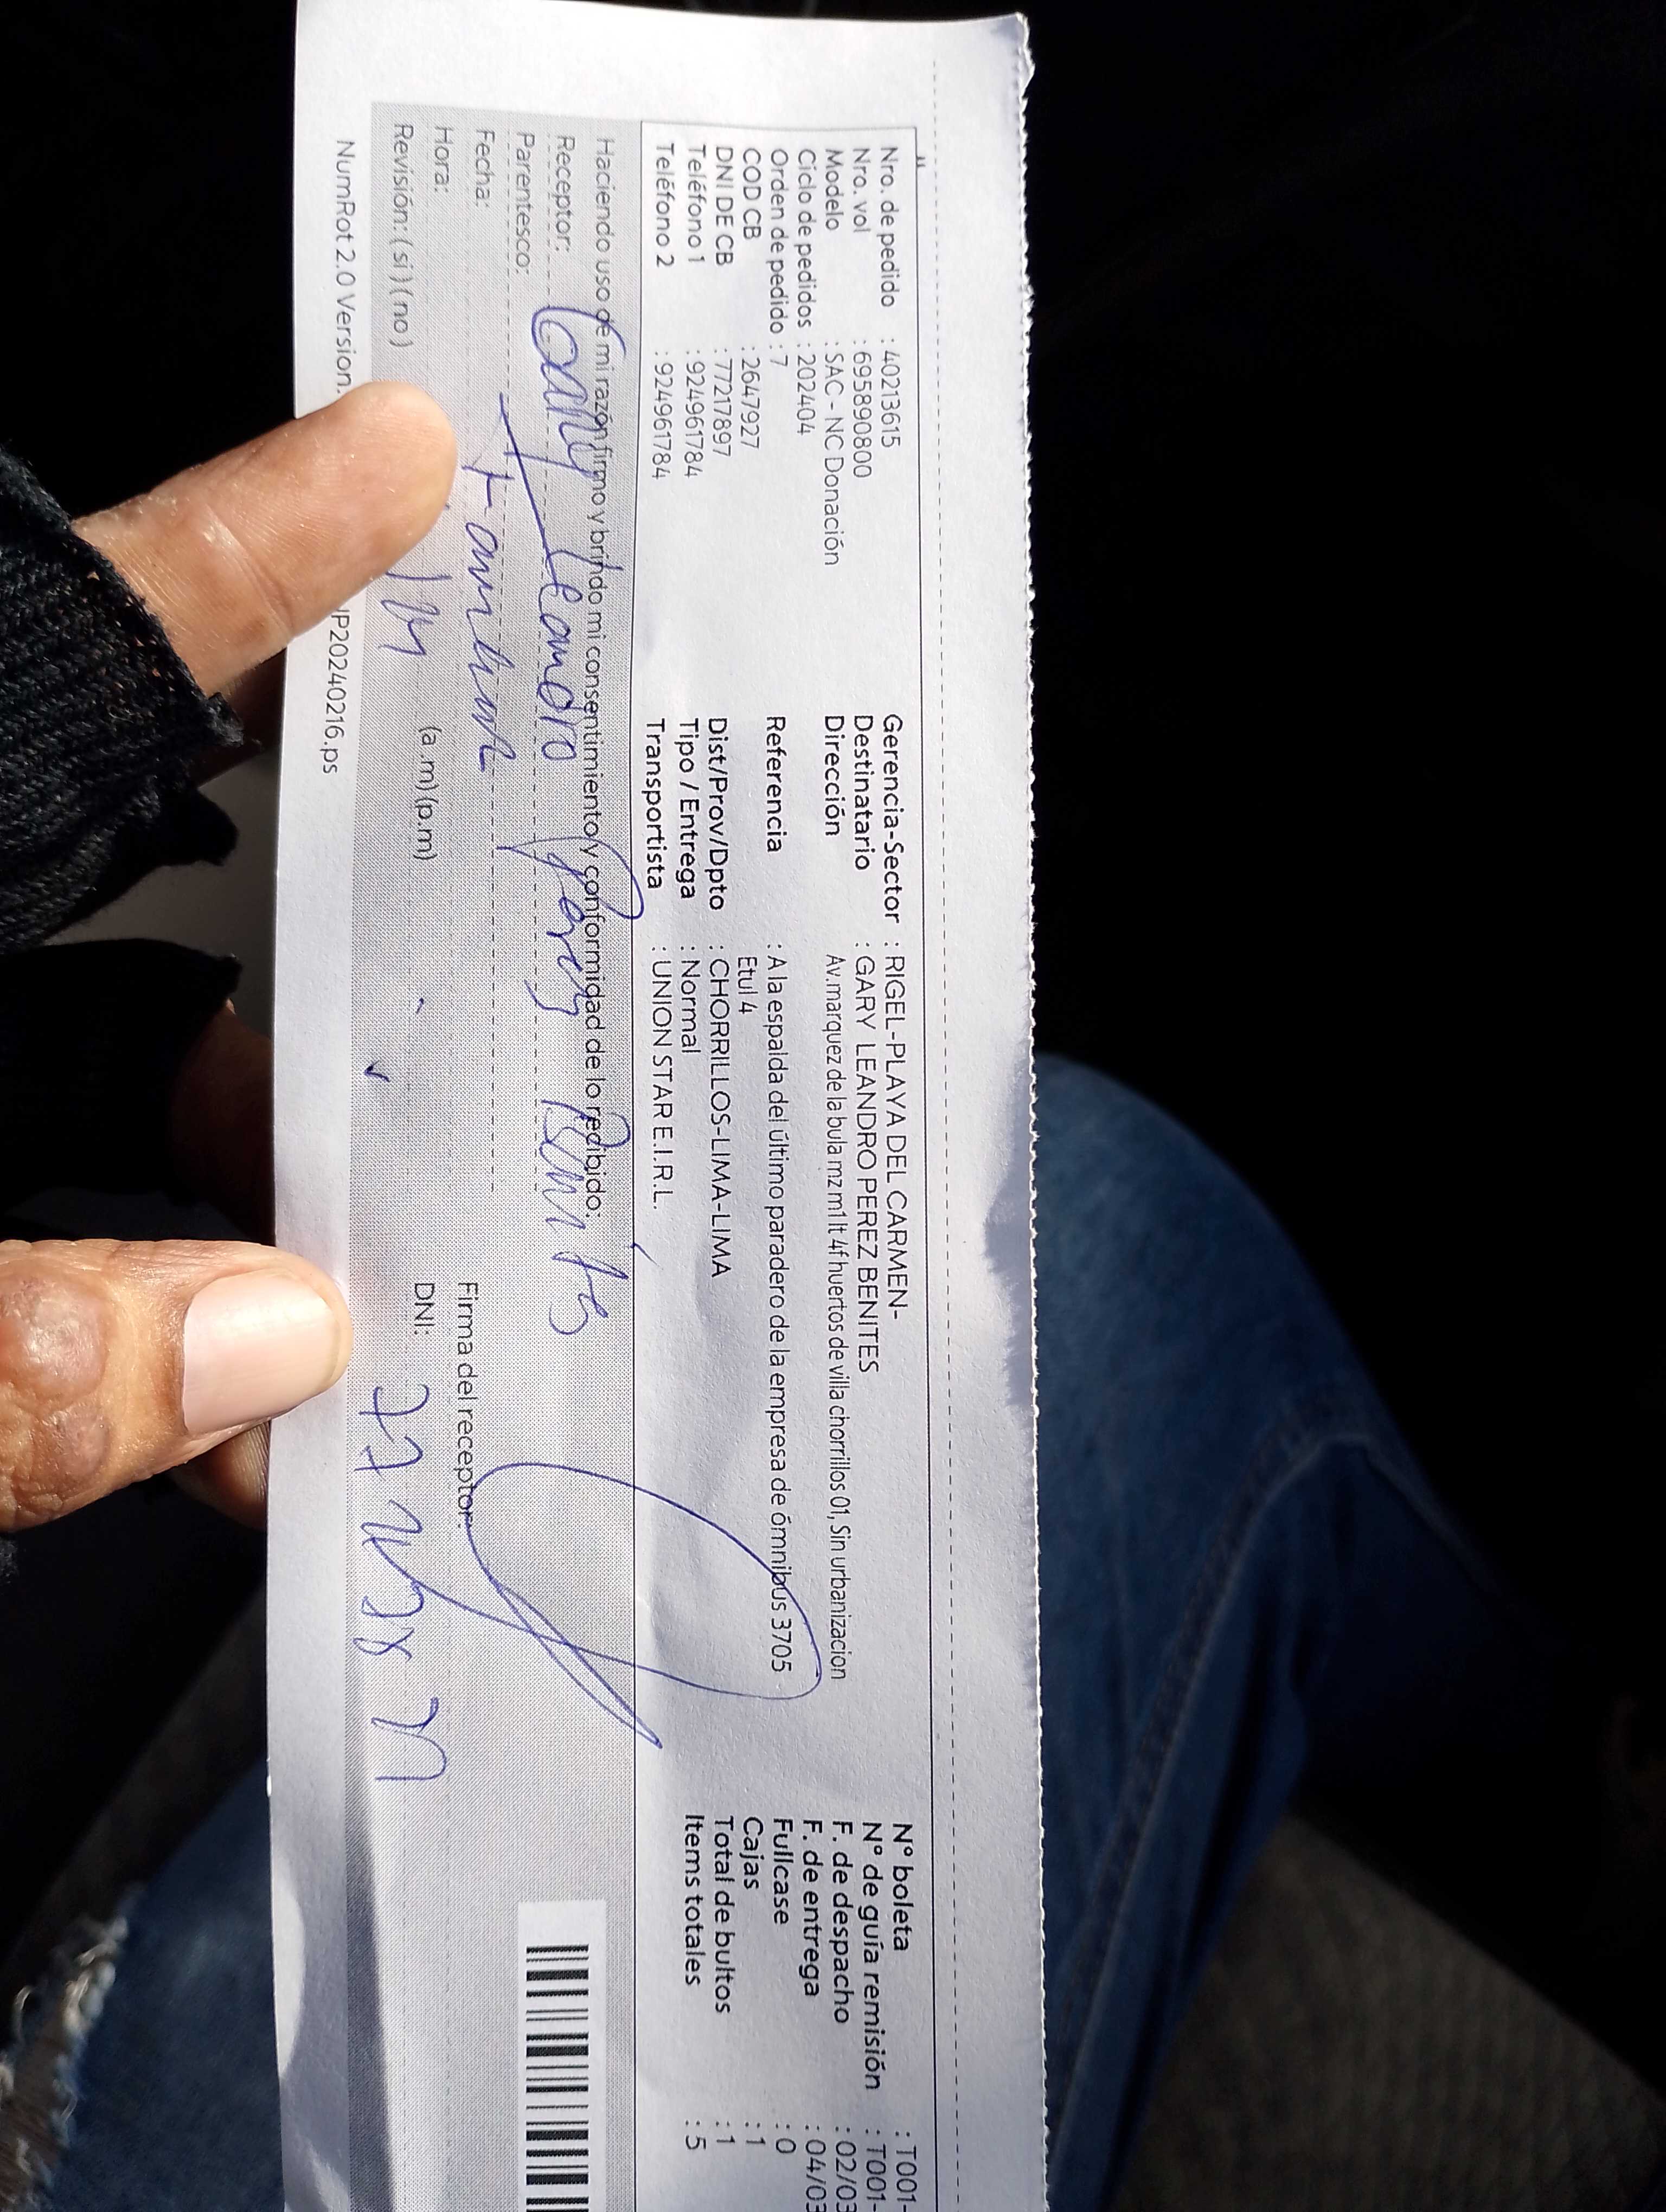 Nro. de pedido : 40213615
Nro. vol : 695890800
Modelo : SAC - NC Donación
Ciclo de pedidos : 202404
Orden de pedido : 7
COD CB : 2647927
DNI DE CB : 77217897
Teléfono 1 : 924961784
Teléfono 2 : 924961784
Gerencia-Sector : RIGEL-PLAYA DEL CARMEN-
Destinatario : GARY LEANDRO PEREZ BENITES
Dirección Av.marquez de la bula mz m1 lt 4f huertos de villa chorrillos 01, Sin urbanizacion
Referencia : A la espalda del último paradero de la empresa de ómnibus 3705
Etul 4
Dist/Prov/Dpto : CHORRILLOS-LIMA-LIMA
Tipo / Entrega : Normal
Transportista : UNION STAR E.I.R.L.
N° boleta : T001-
N° de guía remisión : T001-
F. de despacho : 02/03
F. de entrega : 04/03
Fullcase : 0
Cajas : 1
Total de bultos : 1
Items totales : 5
Haciendo uso de mi razón firmo y brindo mi consentimiento y conformidad de lo recibido:
Receptor: Gary Leandro Perez Benites
Parentesco:
Fecha:
Hora: (a.m)(p.m)
Revisión: ( si ) ( no )
Firma del receptor:
DNI:
NumRot 2.0 Version.
IP20240216.ps